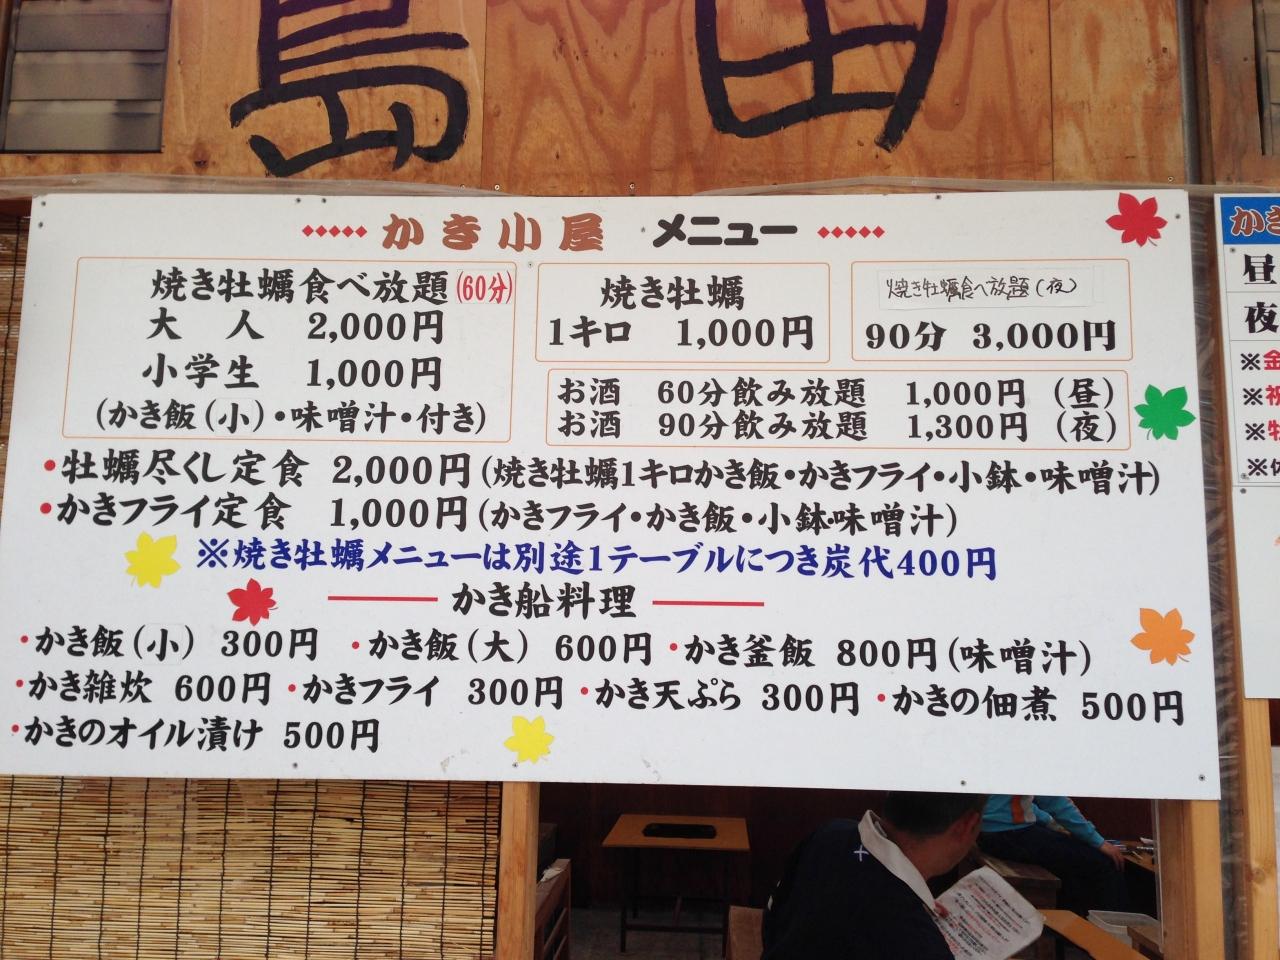 島田
かき小屋 メニュー
焼き牡蠣食べ放題(60分)
大人 2,000円
小学生 1,000円
(かき飯(小)・味噌汁・付き)
焼き牡蠣
1キロ 1,000円
焼き牡蠣食べ放題(夜)
90分 3,000円
お酒 60分飲み放題 1,000円 (昼)
お酒 90分飲み放題 1,300円 (夜)
・牡蠣尽くし定食 2,000円(焼き牡蠣1キロかき飯・かきフライ・小鉢・味噌汁)
・かきフライ定食 1,000円(かきフライ・かき飯・小鉢味噌汁)
※焼き牡蠣メニューは別途1テーブルにつき炭代400円
かき船料理
・かき飯(小) 300円 ・かき飯(大) 600円 ・かき釜飯 800円(味噌汁)
・かき雑炊 600円 ・かきフライ 300円 ・かき天ぷら 300円 ・かきの佃煮 500円
・かきのオイル漬け 500円
かき
昼
夜
※金
※祝
※牡
※休